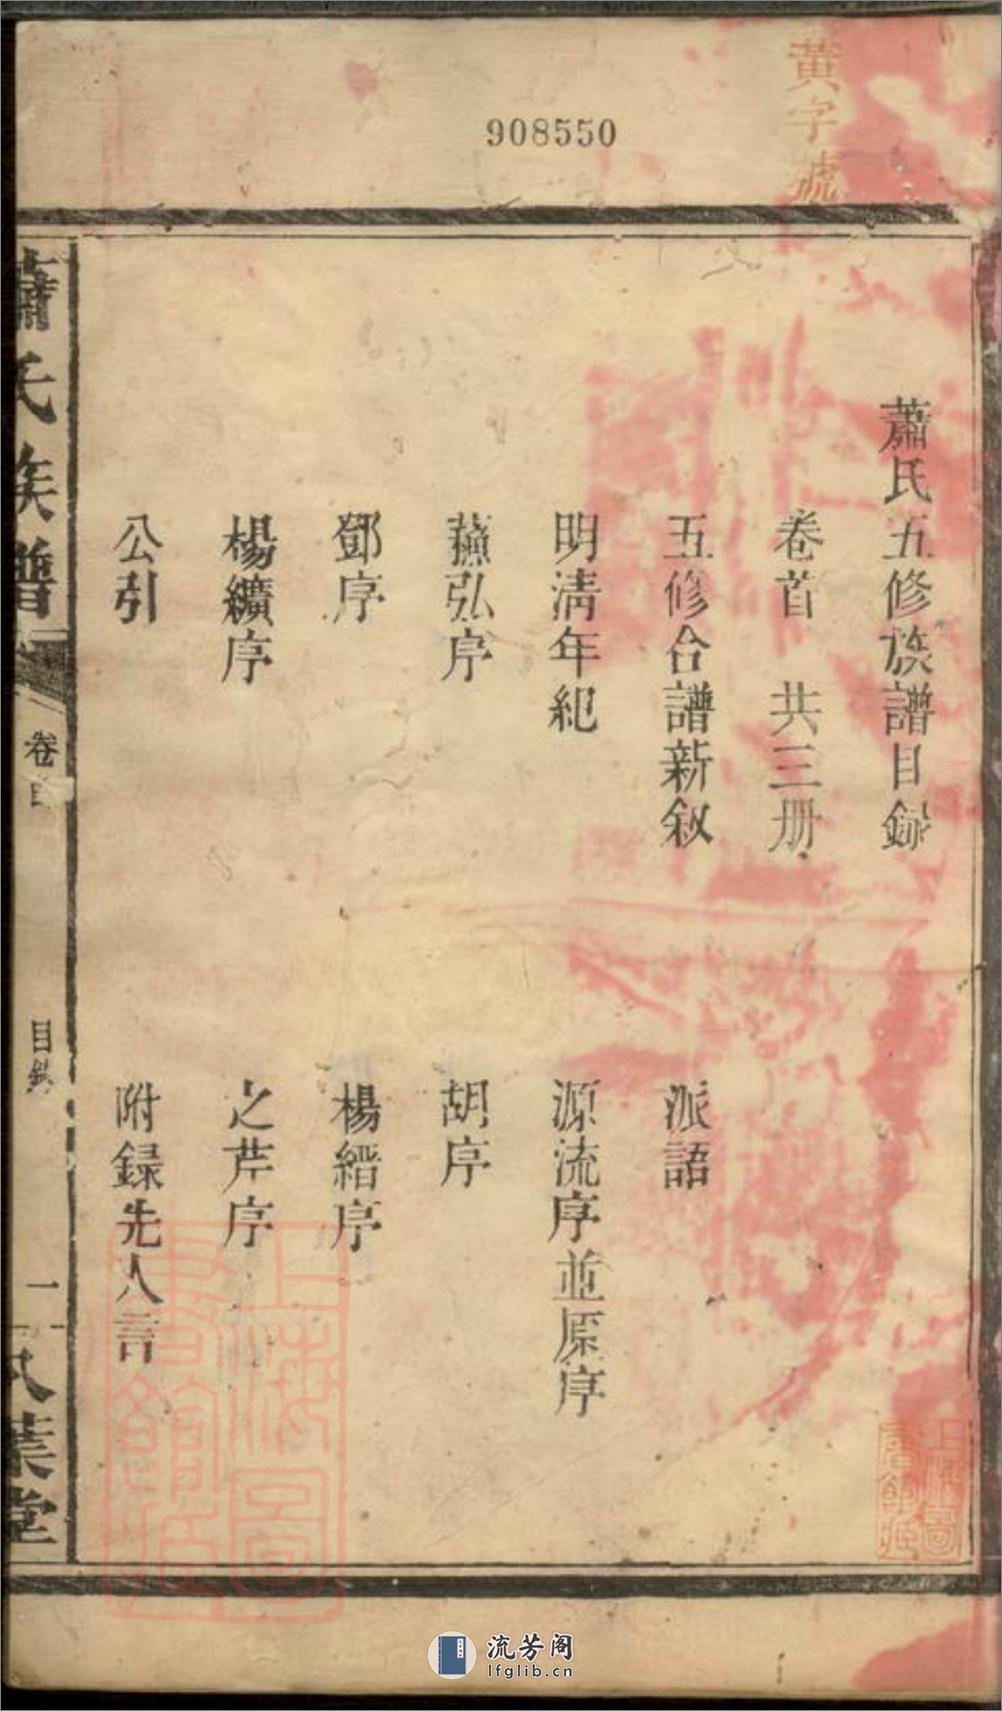 908550
黃字號
蕭氏五修族譜目録
卷首 共三册
五修合譜新敘 派語
明清年紀 源流序並原序
蘓弘序 胡序
鄧序 楊縉序
楊纊序 之芹序
公引 附録先人言
蕭氏族譜 卷首 目録 一 葉堂
上海圖書館藏
上海圖書館藏
流芳阁
lfglib.cn